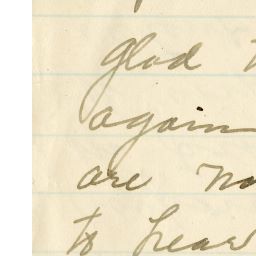 glad
again
are
to hear